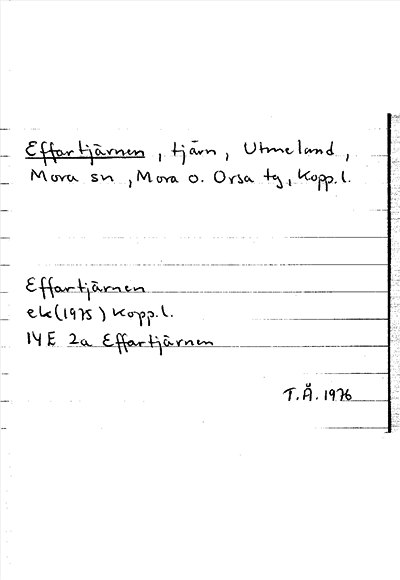 Effartjärnen, tjärn, Utmeland,
Mora sn, Mora o. Orsa tg, Kopp.l.
Effartjärnen
ek (1975) Kopp.l.
14E 2a Effartjärnen
T.Å. 1976